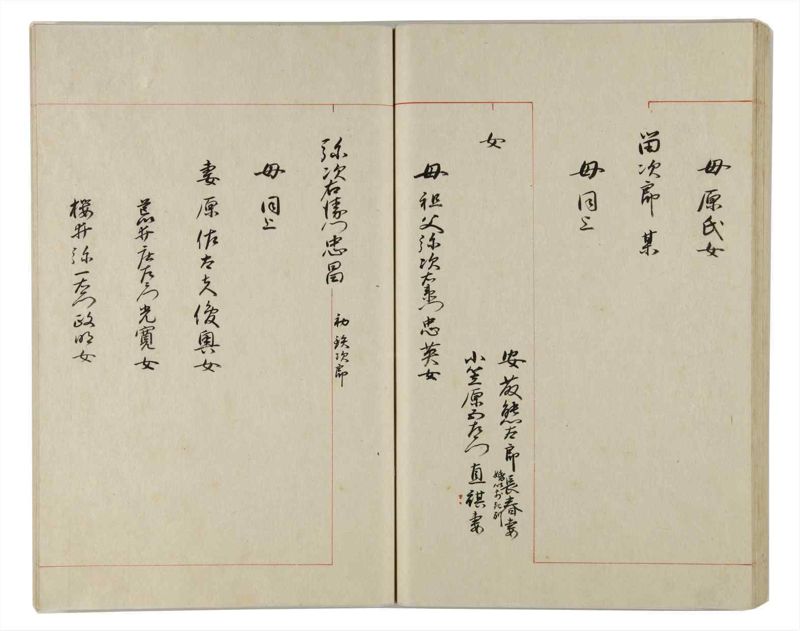 母原氏女
留次郎 某
母同上
女
安藤熊太郎長春妻
小笠原五左衛門直祺妻
母祖父弥次右衛門忠英女
弥次右衛門忠昌
初鉄次郎
母同上
妻原佐太夫俊興女
荒井庄左衛門光寛女
桜井弥一右衛門政明女